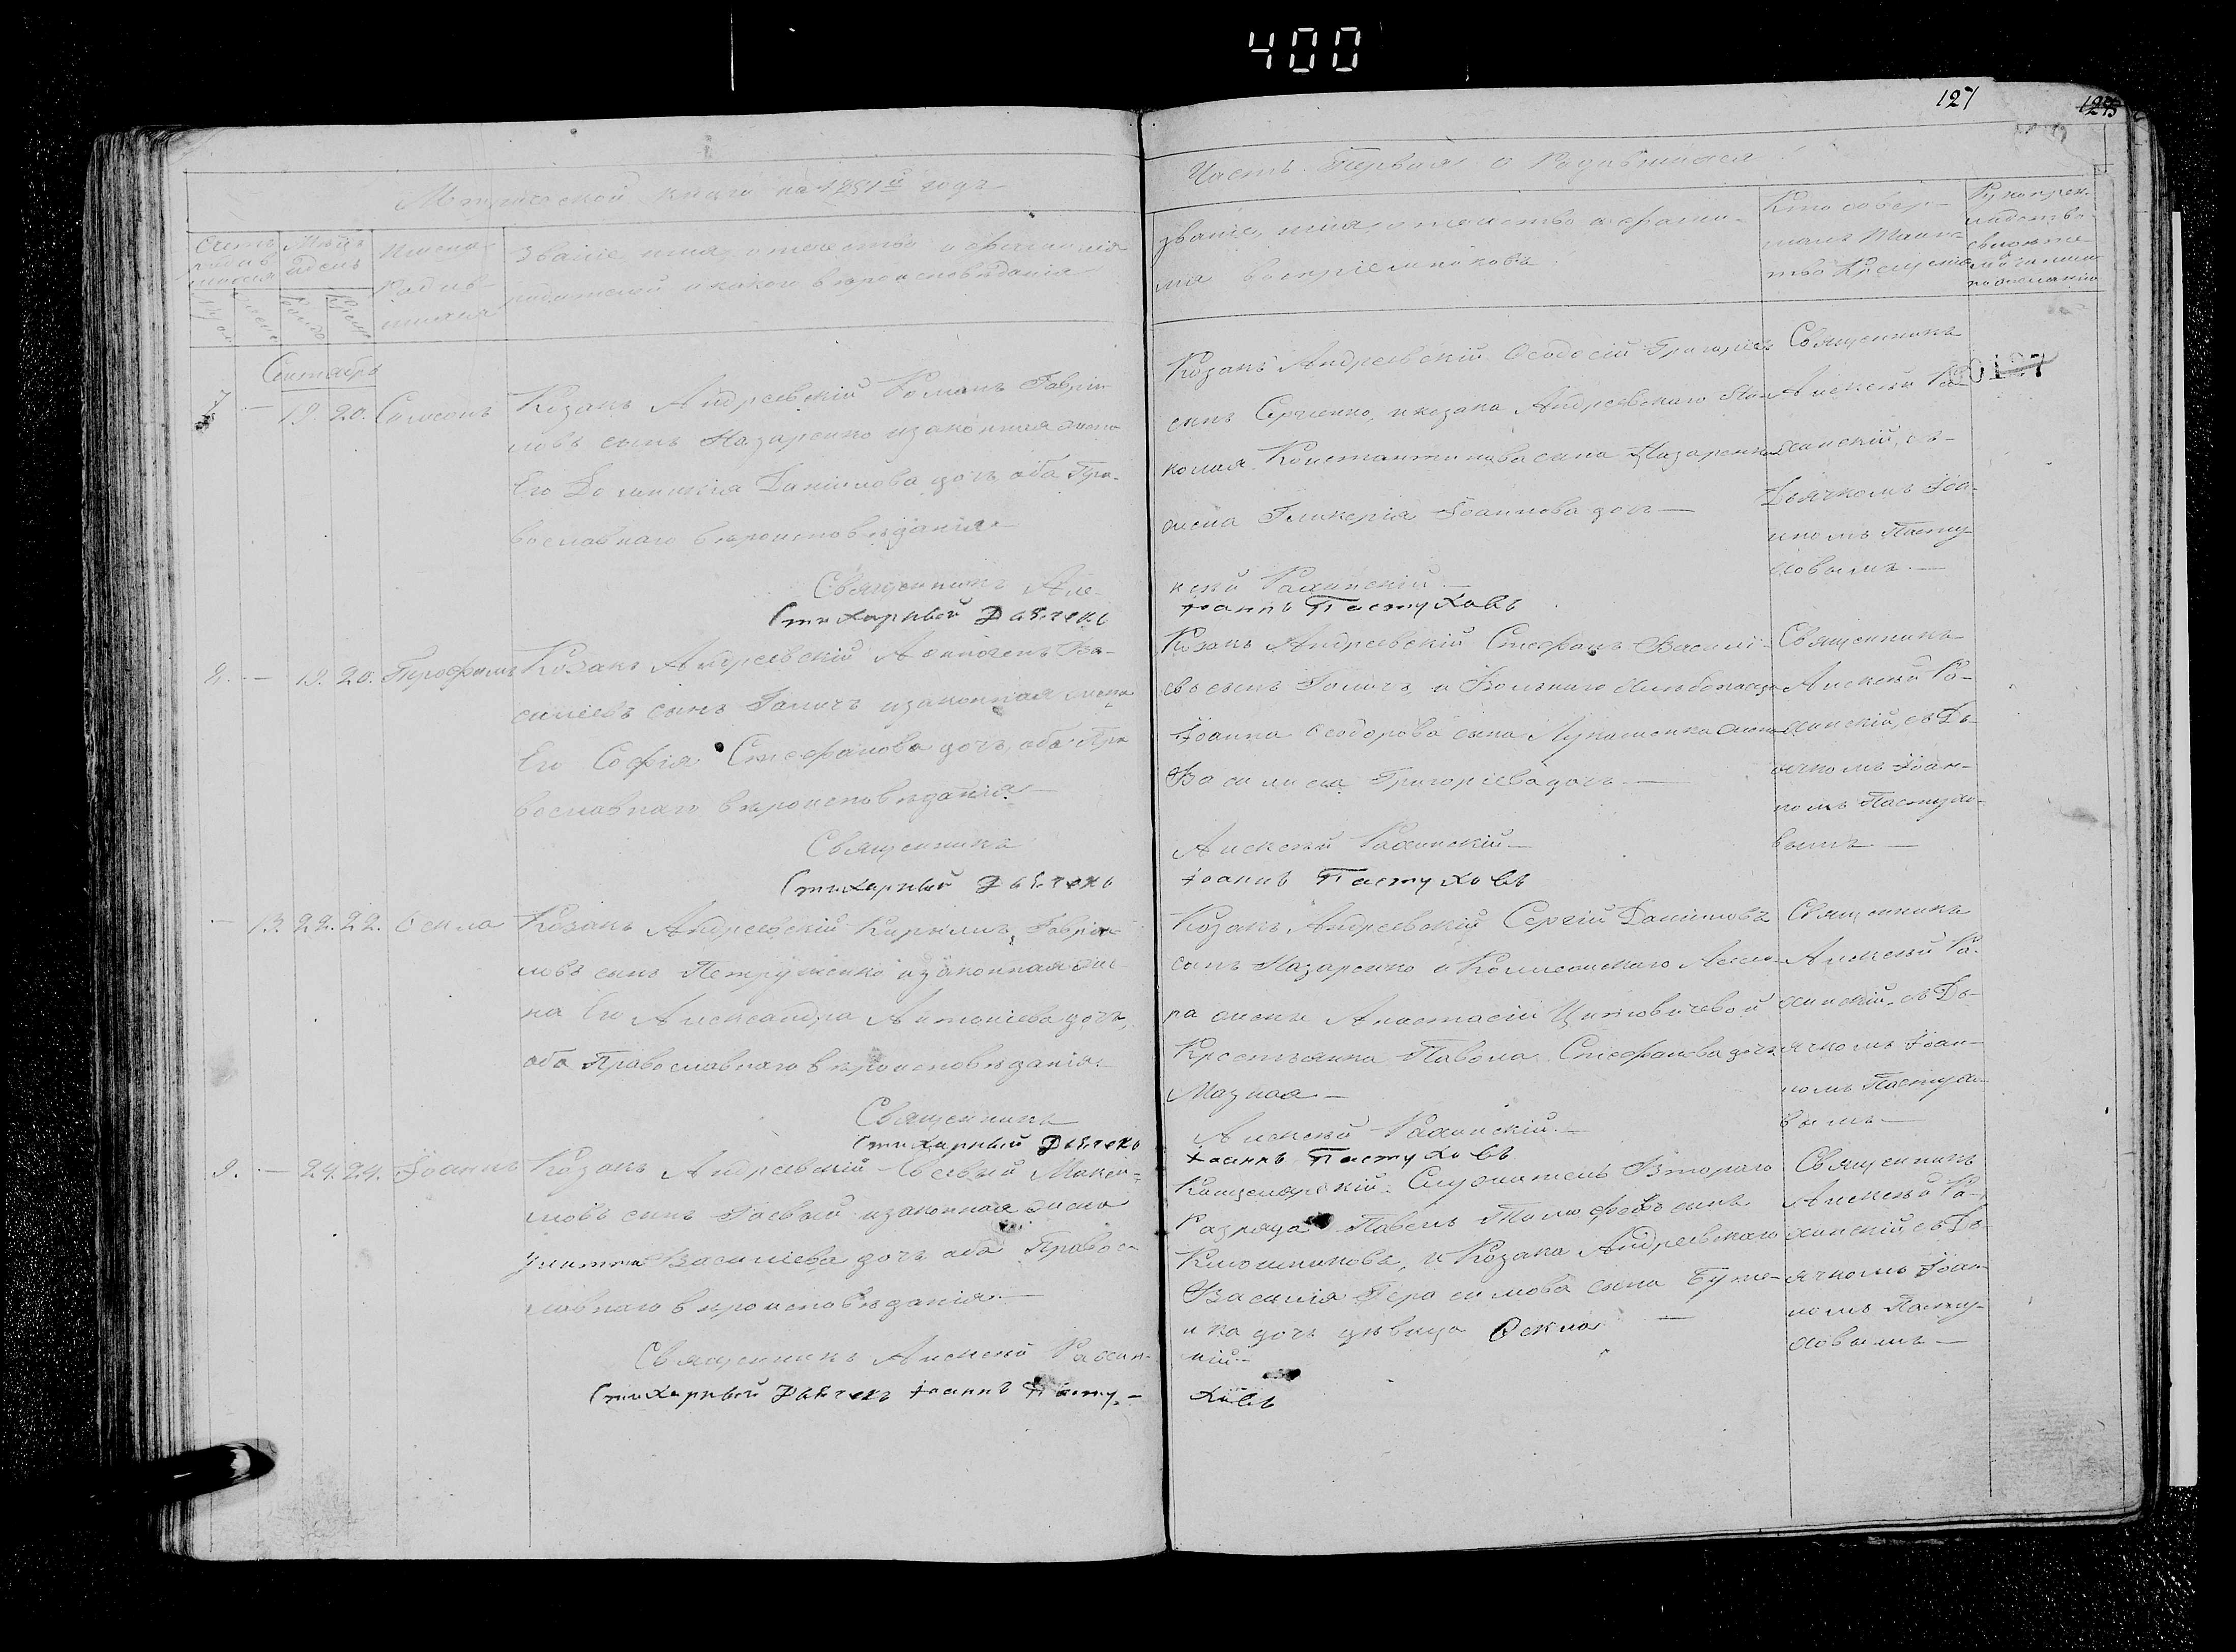 400
127
Метрической книги на 1851й годъ
Часть Первая о Родившихся
Счетъ родив-шихся
Мѣсяцъ и день
Имена Родив-шихся
Званіе, имя, отечество и фамилія
родителей и какого вѣроисповѣданія
Званіе, имя, отечество и фами-
лія воспріемниковъ
Кто совер-
шалъ Таин-
ство Крещенія
Сентябрь
7 — 19. 20. Самсонъ
Козакъ Андреевскій Романъ Гаврiи-
ловъ сынъ Назаренко и законная жена
Его Домникія Даніилова дочь, оба Пра-
вославнаго вѣроисповѣданія
Священникъ Але-
Стихарный Дьячекъ
Козакъ Андреевскій Ѳеодосій Григоріевъ
сынъ Сергіенко, и козака Андреевскаго Ни-
колая Константинова сына Назаренка
жена Гликерія Іоаннова дочь —
ксей Рахинскій —
Іоаннъ Пастуховъ
Священникъ
Алексей Ра-
хинскій, съ
Дьячкомъ Іоа-
нномъ Пасту-
ховымъ. —
8. — 19. 20. Трофимъ
Козакъ Андреевскій Аѳиногенъ Ва-
силіевъ сынъ Голичъ и законная жена
Его Софія Стефанова дочь, оба Пра
вославнаго вѣроисповѣданія —
Священникъ
Стихарный Дьячекъ
Козакъ Андреевскій Стефанъ Василі-
евъ сынъ Голичъ и Вольнаго Хлѣбопашца
Іоанна Ѳеодорова сына Лукашенка жена
Василиса Григоріева дочь. —
Алексей Рахинскій —
Іоаннъ Пастуховъ
Священникъ
Алексей Ра-
хинскій, съ Дь-
ячкомъ Іоан-
номъ Пастухо-
вымъ —
— 13. 22. 22. Ѳекла
Козакъ Андреевскій Кириллъ Гаврiи-
ловъ сынъ Петрушенко и законная же
на Его Александра Антоніева дочь,
оба Православнаго вѣроисповѣданія. —
Священникъ
Стихарный Дьячекъ
Козакъ Андреевскій Сергій Даніиловъ
сынъ Назаренко и Коллежскаго Ассесо-
ра жены Анастасіи Цитовичевой
Крестьянка Павола Стефанова дочь
Мазная —
Алексей Рахинскій. —
Іоаннъ Пастуховъ
Священникъ
Алексей Ра-
хинскій, съ Дь-
ячкомъ Іоан-
номъ Пастухо-
вымъ —
9. — 24. 24. Іоаннъ
Козакъ Андреевскій Евсевій Макси-
мовъ сынъ Гаевый и законная жена
Улитта Василіева дочь оба Правос-
лавнаго вѣроисповѣданія. —
Священникъ Алексей Рахин-
Стихарный Дьячекъ Іоаннъ Пасту-
Канцелярскій Служитель Втораго
Разряда Павелъ Тимофеевъ сынъ
Ключниковъ, и Козака Андреевскаго
Василія Герасимова сына Буте-
нка дочь дѣвица Ѳекла —
скій —
ховъ
Священникъ
Алексей Ра-
хинскій, съ Дь
ячкомъ Іоан-
номъ Пасту-
ховымъ —